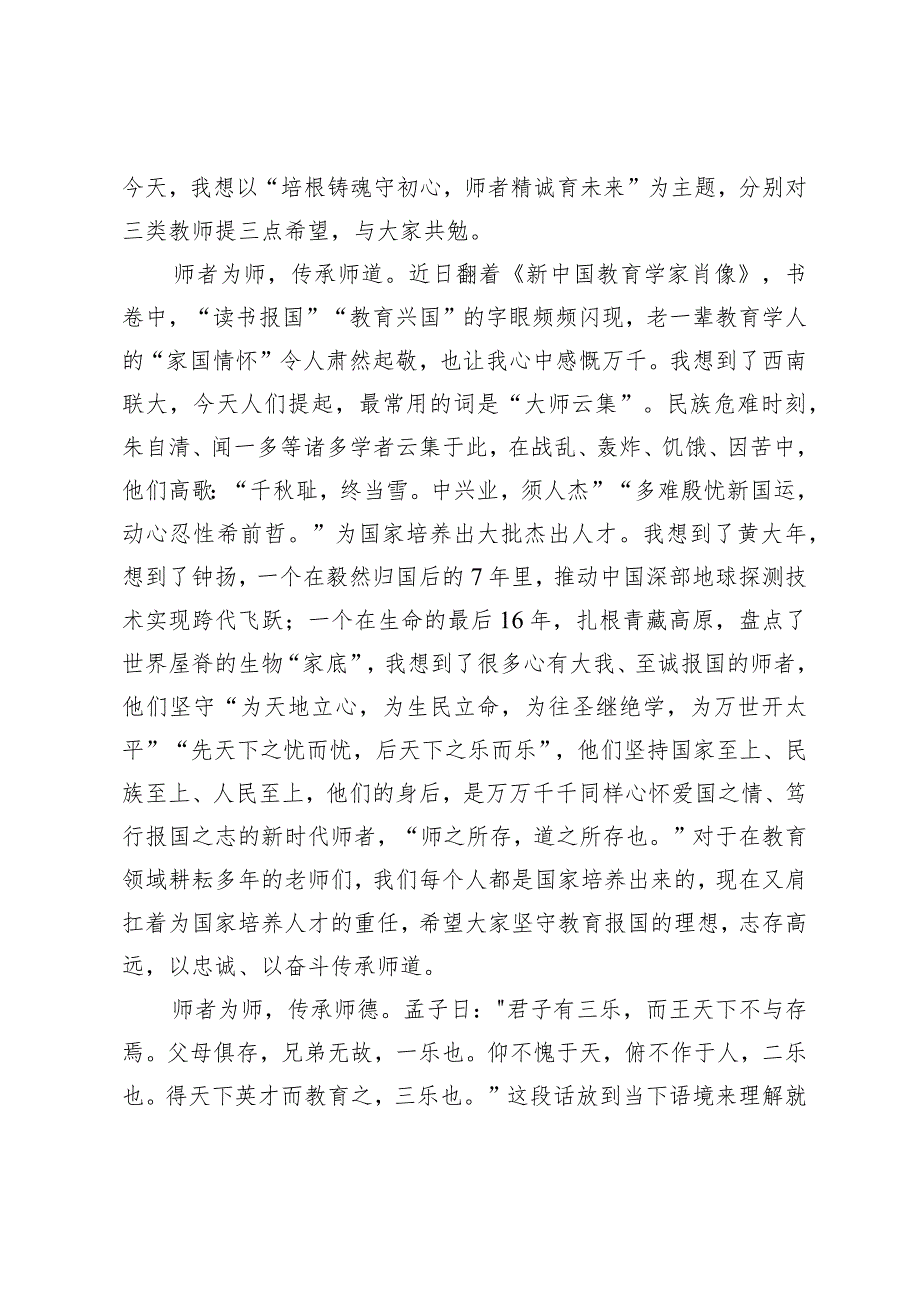 今天，我想以“培根铸魂守初心，师者精诚育未来”为主题，分别对
三类教师提三点希望，与大家共勉。
师者为师，传承师道。近日翻着《新中国教育学家肖像》，书
卷中，“读书报国”“教育兴国”的字眼频频闪现，老一辈教育学人
的“家国情怀”令人肃然起敬，也让我心中感慨万千。我想到了西南
联大，今天人们提起，最常用的词是“大师云集”。民族危难时刻，
朱自清、闻一多等诸多学者云集于此，在战乱、轰炸、饥饿、因苦中，
他们高歌：“千秋耻，终当雪。中兴业，须人杰”“多难殷忧新国运，
动心忍性希前哲。”为国家培养出大批杰出人才。我想到了黄大年，
想到了钟扬，一个在毅然归国后的7年里，推动中国深部地球探测技
术实现跨代飞跃；一个在生命的最后16年，扎根青藏高原，盘点了
世界屋脊的生物“家底”，我想到了很多心有大我、至诚报国的师者，
他们坚守“为天地立心，为生民立命，为往圣继绝学，为万世开太
平”“先天下之忧而忧，后天下之乐而乐”，他们坚持国家至上、民
族至上、人民至上，他们的身后，是万万千千同样心怀爱国之情、笃
行报国之志的新时代师者，“师之所存，道之所存也。”对于在教育
领域耕耘多年的老师们，我们每个人都是国家培养出来的，现在又肩
扛着为国家培养人才的重任，希望大家坚守教育报国的理想，志存高
远，以忠诚、以奋斗传承师道。
师者为师，传承师德。孟子日："君子有三乐，而王天下不与存
焉。父母俱存，兄弟无故，一乐也。仰不愧于天，俯不作于人，二乐
也。得天下英才而教育之，三乐也。”这段话放到当下语境来理解就